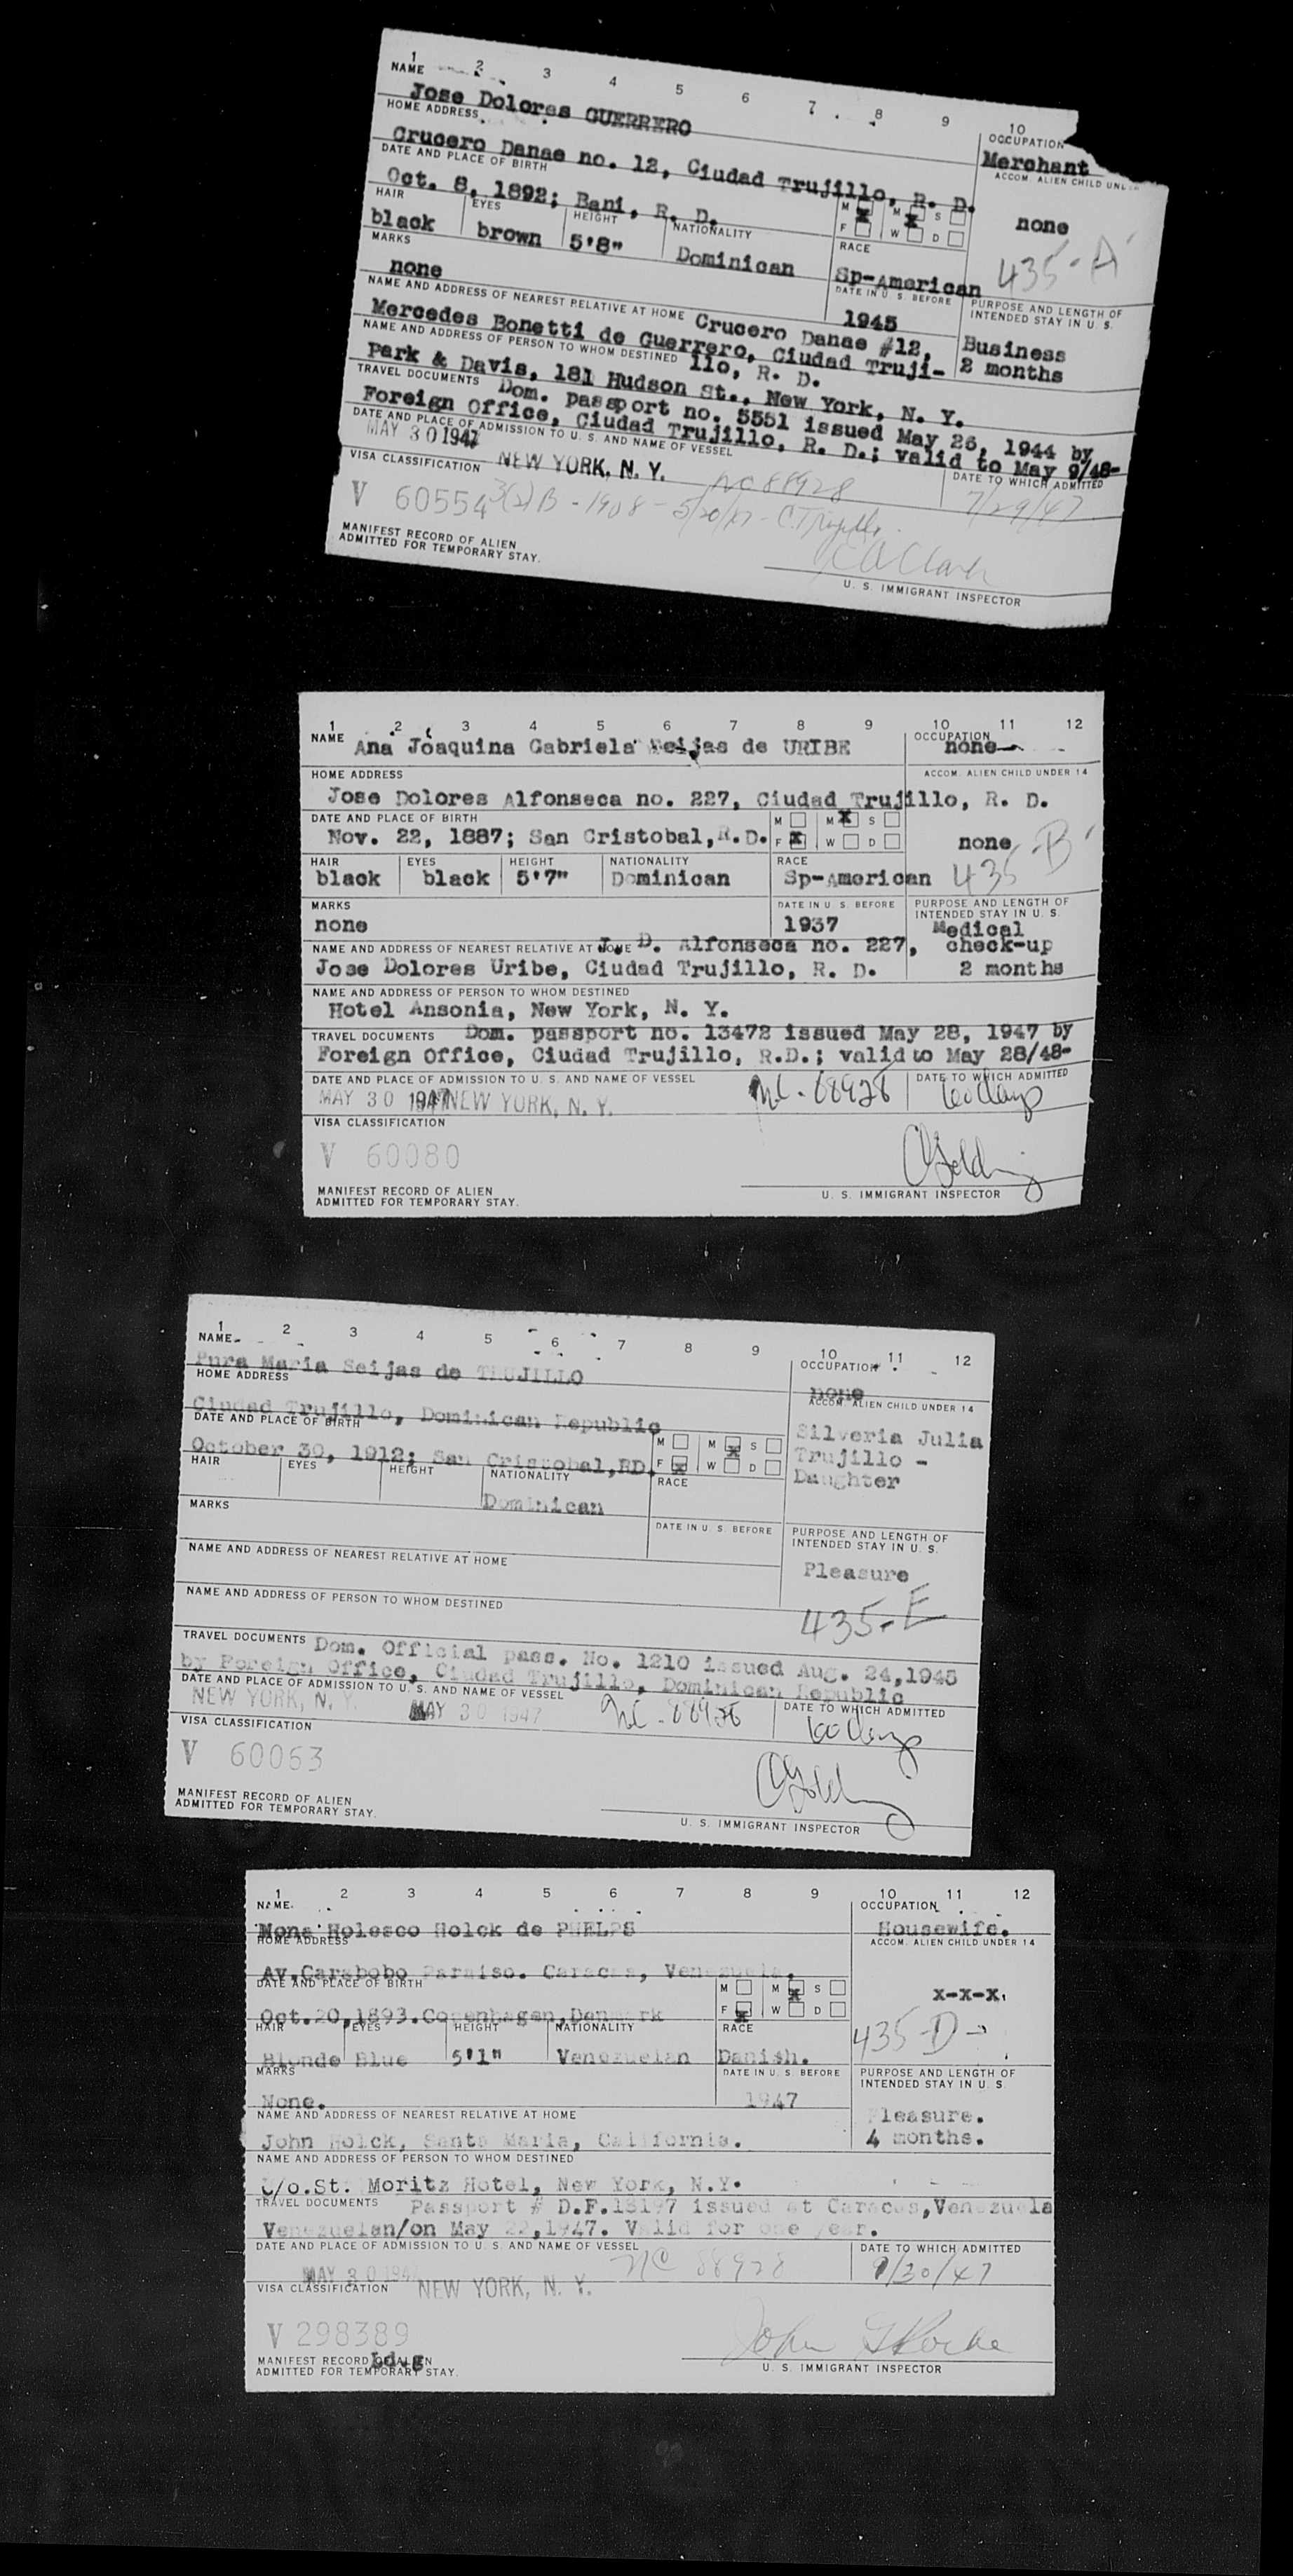 1 2 3 4 5 6 7 8 9 10
NAME OCCUPATION
Jose Dolores GUERRERO Merchant
HOME ADDRESS ACCOM. ALIEN CHILD
Crucero Danae no. 12, Ciudad Trujillo, R. D.
DATE AND PLACE OF BIRTH M X M X S
Oct. 8, 1892; Bani, R. D. F W D none
HAIR EYES HEIGHT NATIONALITY RACE
black brown 5'8" Dominican Sp-American 435-A
MARKS DATE IN U. S. BEFORE PURPOSE AND LENGTH OF INTENDED STAY IN U. S.
none 1945
NAME AND ADDRESS OF NEAREST RELATIVE AT HOME Crucero Danae #12, Business
Mercedes Bonetti de Guerrero, Ciudad Truji- 2 months
NAME AND ADDRESS OF PERSON TO WHOM DESTINED llo, R. D.
Park & Davis, 181 Hudson St., New York, N. Y.
TRAVEL DOCUMENTS Dom. passport no. 5551 issued May 26, 1944 by
Foreign Office, Ciudad Trujillo, R. D.; valid to May 9/48-
DATE AND PLACE OF ADMISSION TO U. S. AND NAME OF VESSEL DATE TO WHICH ADMITTED
MAY 30 1947 NEW YORK, N. Y. NC 88928 7/29/47
VISA CLASSIFICATION
V 60554 3(2)B - 1908 - 5/20/47 - C. Trujillo.
MANIFEST RECORD OF ALIEN
ADMITTED FOR TEMPORARY STAY.
C A Clark
U. S. IMMIGRANT INSPECTOR
1 2 3 4 5 6 7 8 9 10 11 12
NAME Ana Joaquina Gabriela Seijas de URIBE OCCUPATION none
HOME ADDRESS ACCOM. ALIEN CHILD UNDER 14
Jose Dolores Alfonseca no. 227, Ciudad Trujillo, R. D.
DATE AND PLACE OF BIRTH M M X S
Nov. 22, 1887; San Cristobal, R.D. F X W D none
HAIR EYES HEIGHT NATIONALITY RACE
black black 5'7" Dominican Sp-American 435-B
MARKS DATE IN U. S. BEFORE PURPOSE AND LENGTH OF INTENDED STAY IN U. S.
none 1937 Medical
NAME AND ADDRESS OF NEAREST RELATIVE AT HOME D. Alfonseca no. 227, check-up
Jose Dolores Uribe, Ciudad Trujillo, R. D. 2 months
NAME AND ADDRESS OF PERSON TO WHOM DESTINED
Hotel Ansonia, New York, N. Y.
TRAVEL DOCUMENTS Dom. passport no. 13472 issued May 28, 1947 by
Foreign Office, Ciudad Trujillo, R.D.; valid to May 28/48-
DATE AND PLACE OF ADMISSION TO U. S. AND NAME OF VESSEL DATE TO WHICH ADMITTED
MAY 30 1947 NEW YORK, N. Y. NC-88928 60 days
VISA CLASSIFICATION
V 60080
MANIFEST RECORD OF ALIEN
ADMITTED FOR TEMPORARY STAY.
U. S. IMMIGRANT INSPECTOR
1 2 3 4 5 6 7 8 9 10 11 12
NAME OCCUPATION
Pura Maria Seijas de TRUJILLO none
HOME ADDRESS ACCOM. ALIEN CHILD UNDER 14
Ciudad Trujillo, Dominican Republic
DATE AND PLACE OF BIRTH M M X S Silveria Julia
October 30, 1912; San Cristobal, RD. F X W D Trujillo -
HAIR EYES HEIGHT NATIONALITY RACE Daughter
Dominican
MARKS DATE IN U. S. BEFORE PURPOSE AND LENGTH OF INTENDED STAY IN U. S.
NAME AND ADDRESS OF NEAREST RELATIVE AT HOME Pleasure
NAME AND ADDRESS OF PERSON TO WHOM DESTINED 435-E
TRAVEL DOCUMENTS Dom. Official pass. No. 1210 issued Aug. 24,1945
by Foreign Office, Ciudad Trujillo, Dominican Republic
DATE AND PLACE OF ADMISSION TO U. S. AND NAME OF VESSEL DATE TO WHICH ADMITTED
NEW YORK, N. Y. MAY 30 1947 NC-88928 60 days
VISA CLASSIFICATION
V 60063
MANIFEST RECORD OF ALIEN
ADMITTED FOR TEMPORARY STAY.
U. S. IMMIGRANT INSPECTOR
1 2 3 4 5 6 7 8 9 10 11 12
NAME OCCUPATION
Mona Holesco Holck de PHELPS Housewife.
HOME ADDRESS ACCOM. ALIEN CHILD UNDER 14
Av. Carabobo Paraiso. Caracas, Venezuela.
DATE AND PLACE OF BIRTH M M X S X-X-X.
Oct.20,1893.Copenhagen,Denmark F X W D
HAIR EYES HEIGHT NATIONALITY RACE 435-D-
Blonde Blue 5'1" Venezuelan Danish.
MARKS DATE IN U. S. BEFORE PURPOSE AND LENGTH OF INTENDED STAY IN U. S.
None. 1947
NAME AND ADDRESS OF NEAREST RELATIVE AT HOME Pleasure.
John Holck, Santa Maria, California. 4 months.
NAME AND ADDRESS OF PERSON TO WHOM DESTINED
C/o.St. Moritz Hotel, New York, N.Y.
TRAVEL DOCUMENTS Passport # D.F.18197 issued at Caracas,Venezuela
Venezuelan/on May 22,1947. Valid for one year.
DATE AND PLACE OF ADMISSION TO U. S. AND NAME OF VESSEL DATE TO WHICH ADMITTED
MAY 30 1947 NEW YORK, N. Y. NC 88928 9/30/47
VISA CLASSIFICATION
V 298389
bd.g
MANIFEST RECORD OF ALIEN
ADMITTED FOR TEMPORARY STAY.
U. S. IMMIGRANT INSPECTOR